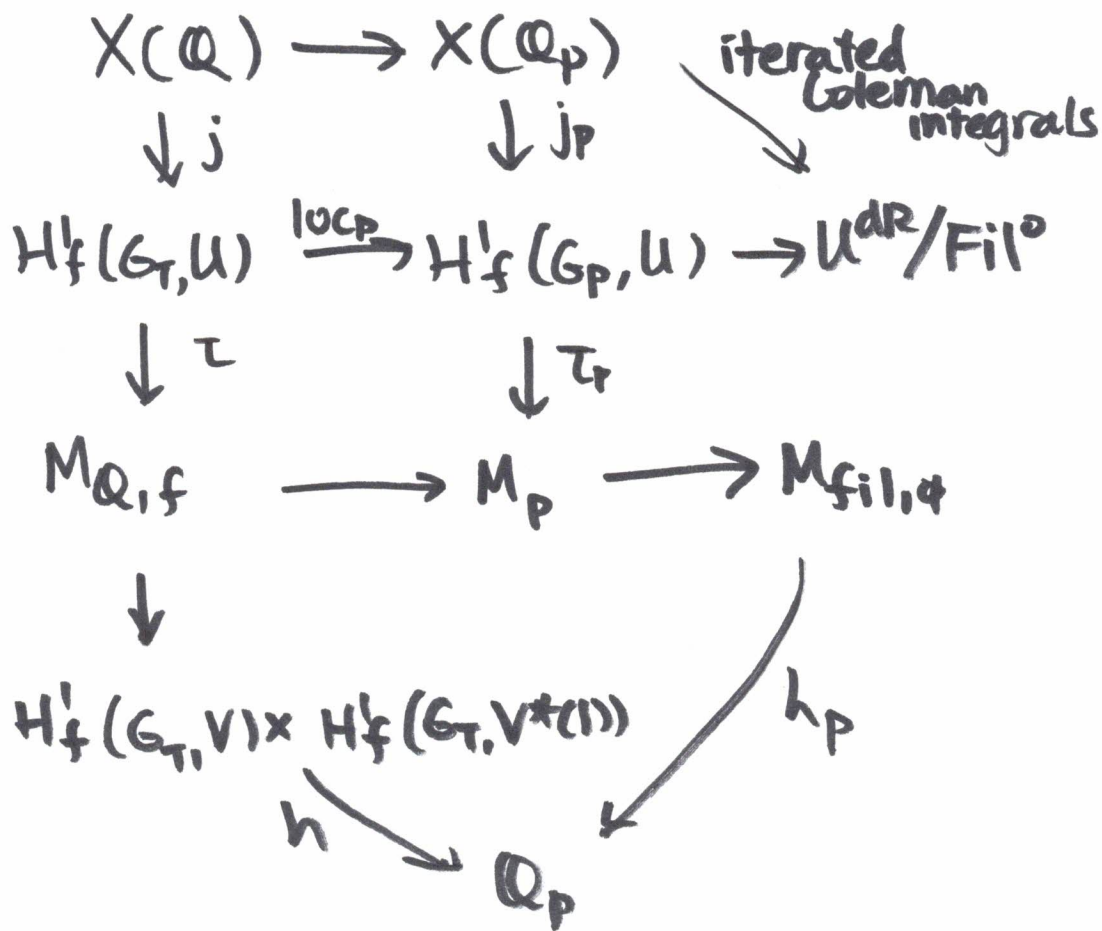 X(ℚ) ⟶ X(ℚ_p) iterated
Coleman
integrals
↓ j ↓ j_p ↘
H¹_f(G_T, U) loc_p ⟶ H¹_f(G_p, U) ⟶ U^dR/Fil⁰
↓ τ ↓ τ_p
M_ℚ,f ⟶ M_p ⟶ M_fil,φ
↓
H¹_f(G_T, V) × H¹_f(G_T, V*(1)) h_p
h
ℚ_p